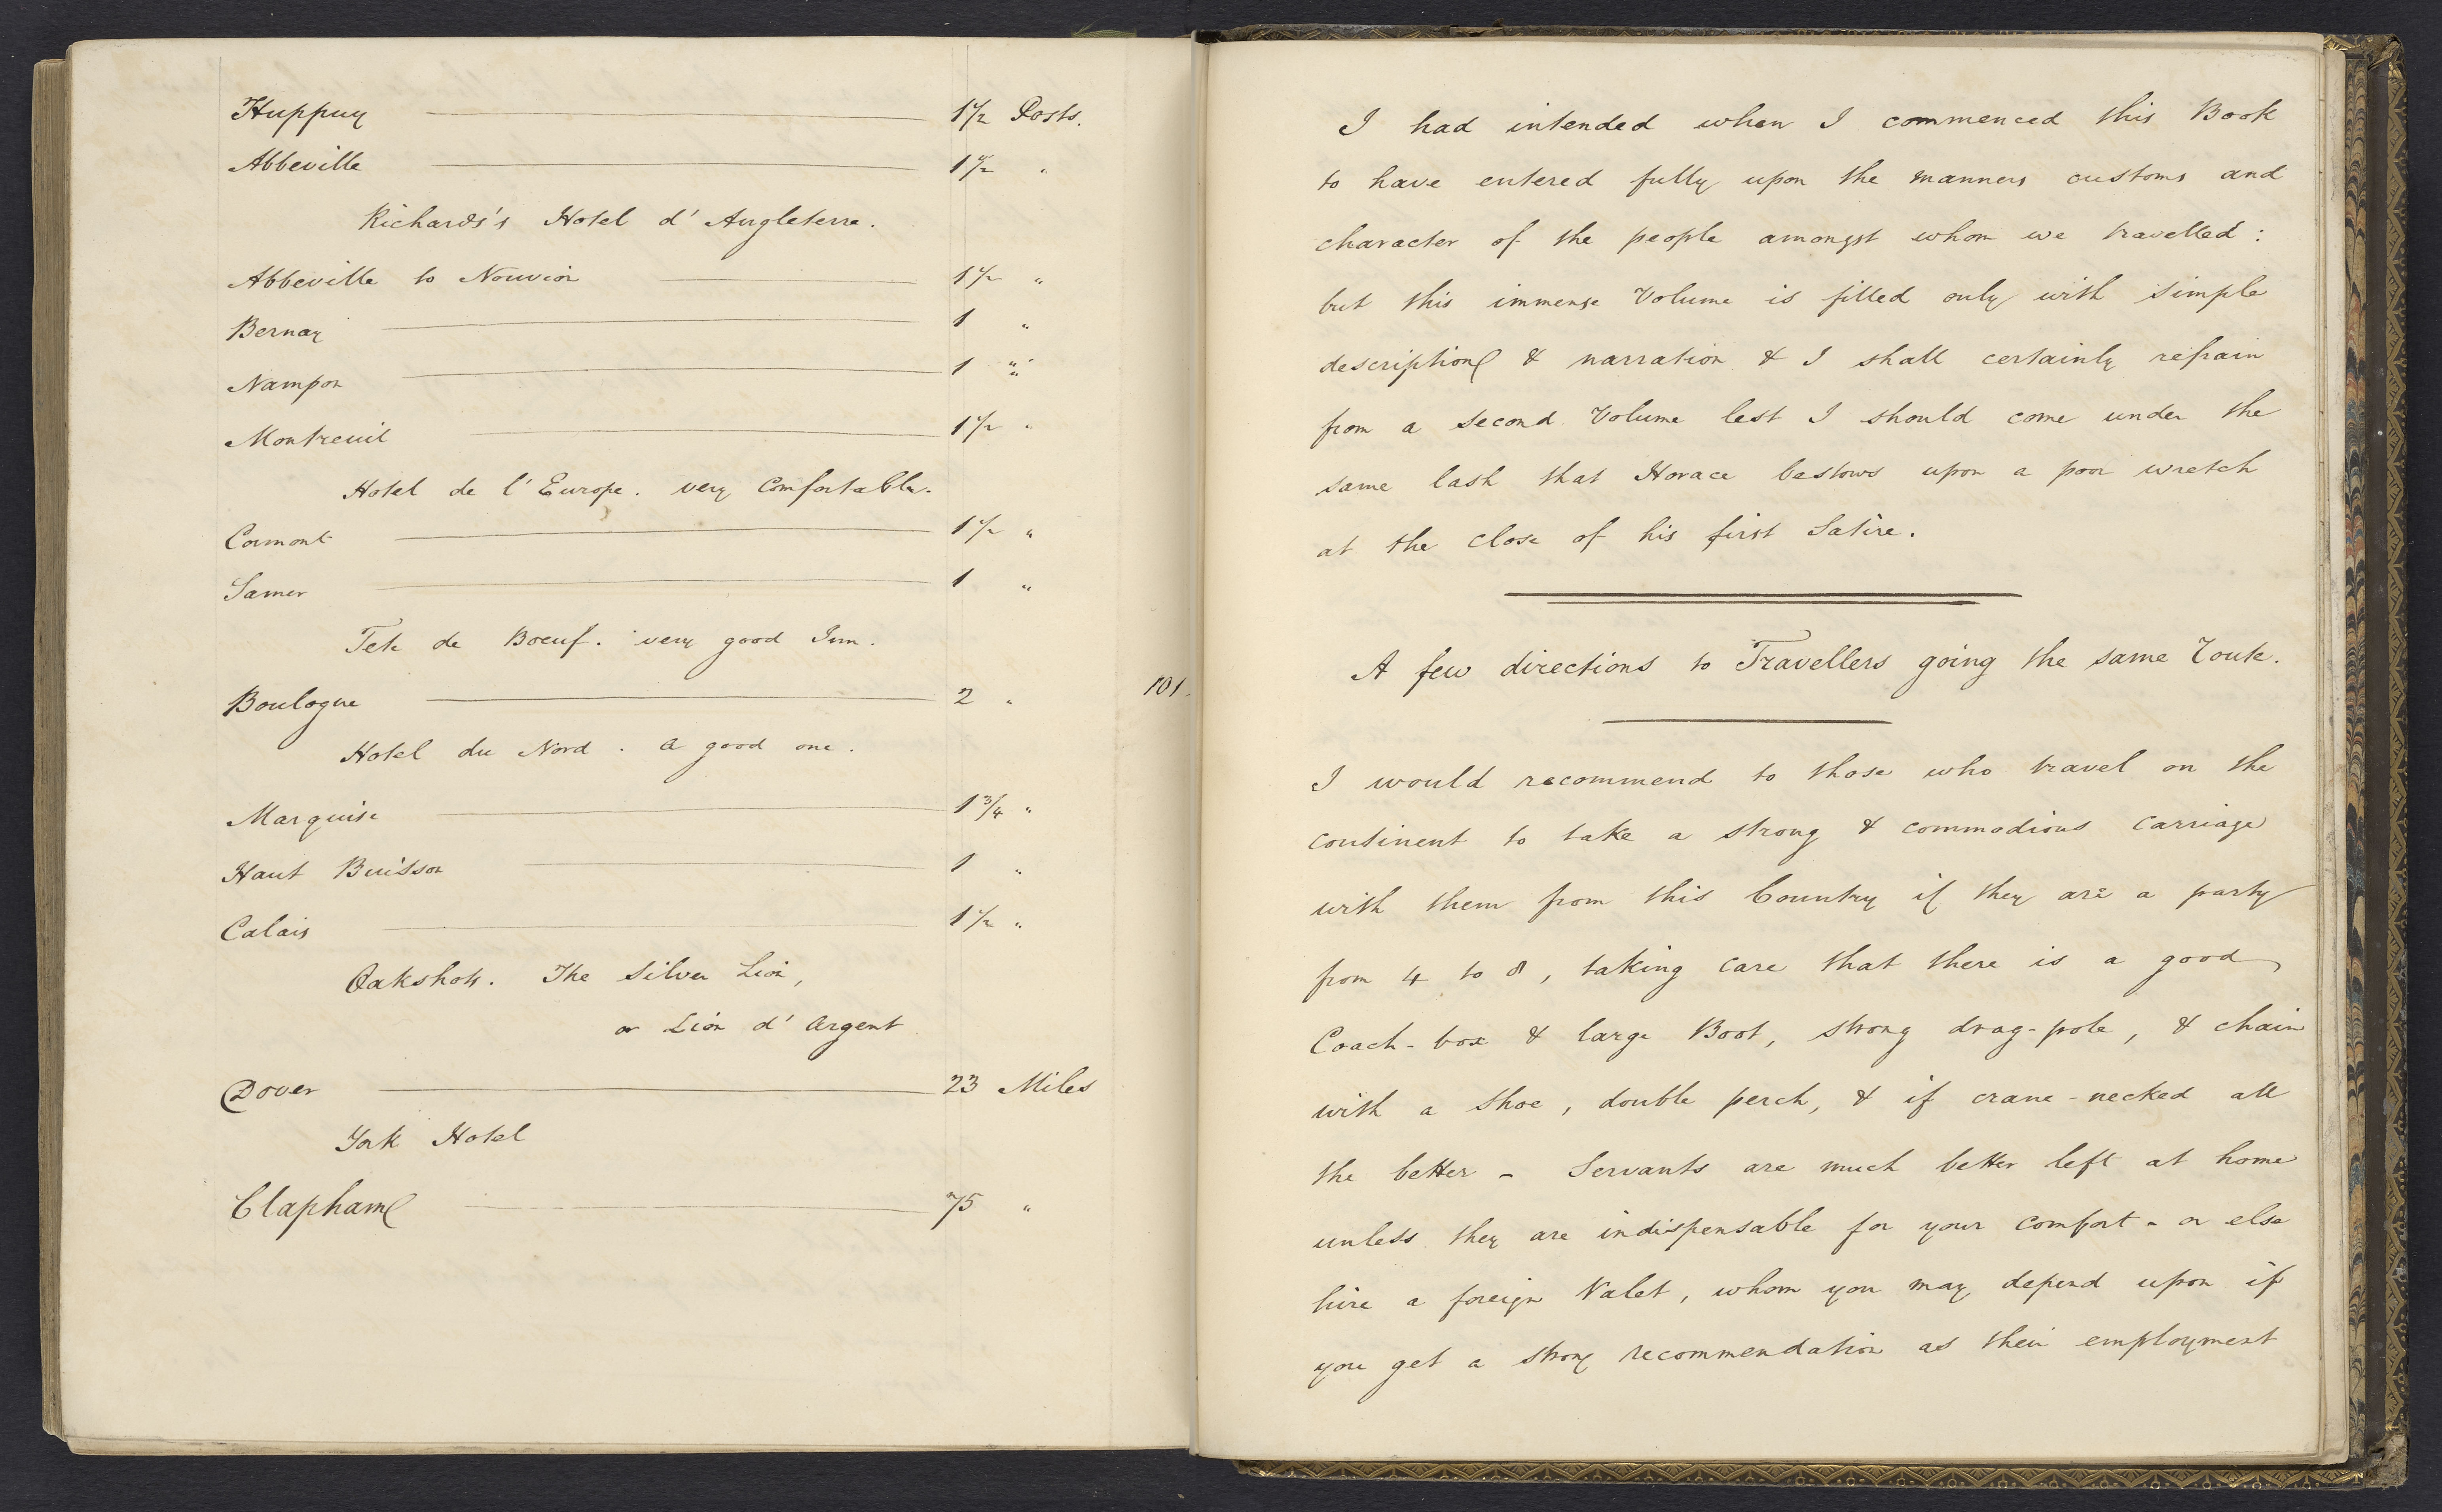 Huppuy 1 1/2 Posts.
Abbeville 1 1/2 "
Richards's Hotel d'Angleterre.
Abbeville to Nouvion 1 1/2 "
Bernay 1 "
Nampon 1 "
Montreuil 1 1/2 "
Hotel de l'Europe. very Comfortable.
Cormont 1 1/2 "
Samer 1 "
Tete de Boeuf. very good Inn.
Boulogne 2 " 101.
Hotel du Nord. a good one.
Marquise 1 3/4 "
Haut Buisson 1 "
Calais 1 1/2 "
Oakshots. The Silver Lion,
or Lion d'Argent
Dover 23 Miles
York Hotel
Clapham 75 "
I had intended when I commenced this Book
to have entered fully upon the manners customs and
character of the people amongst whom we travelled:
but this immense Volume is filled only with simple
description & narration & I shall certainly refrain
from a second Volume lest I should come under the
same lash that Horace bestows upon a poor wretch
at the close of his first Satire.
A few directions to Travellers going the same Route.
I would recommend to those who travel on the
continent to take a strong & commodious carriage
with them from this Country if they are a party
from 4 to 8, taking care that there is a good
Coach-box & large Boot, strong drag-pole, & chain
with a shoe, double perch, & if crane-necked all
the better - Servants are much better left at home
unless they are indispensable for your comfort - or else
hire a foreign Valet, whom you may depend upon if
you get a strong recommendation as their employment